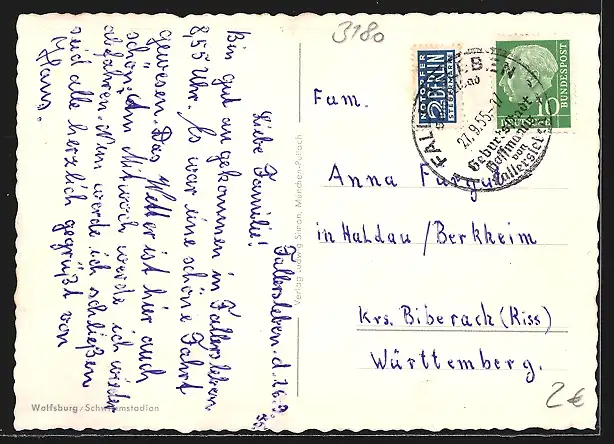 3180
Fallersleben. d. 26.9.55.
Liebe Familie!
Bin gut angekommen in Fallersleben
8 55 Uhr. Es war eine schöne Fahrt
gewesen. Das Wetter ist hier auch
schön. Am Mitwoch werde ich wieder
abfahren. Nun werde ich schließen
und alle herzlich gegrüßt von
Hans.
Verlag Ludwig Simon, München-Pullach
Wolfsburg / Schwimmstadion
NOTOPFER
2 BERLIN
STEUERMARKE
10
DEUTSCHE
BUNDESPOST
27.9.55
Geburtsstadt
Hoffmanns
von
Fallersleben
Fam.
Anna
in Haldau / Berkheim
Krs. Biberach (Riss)
Württemberg.
2€